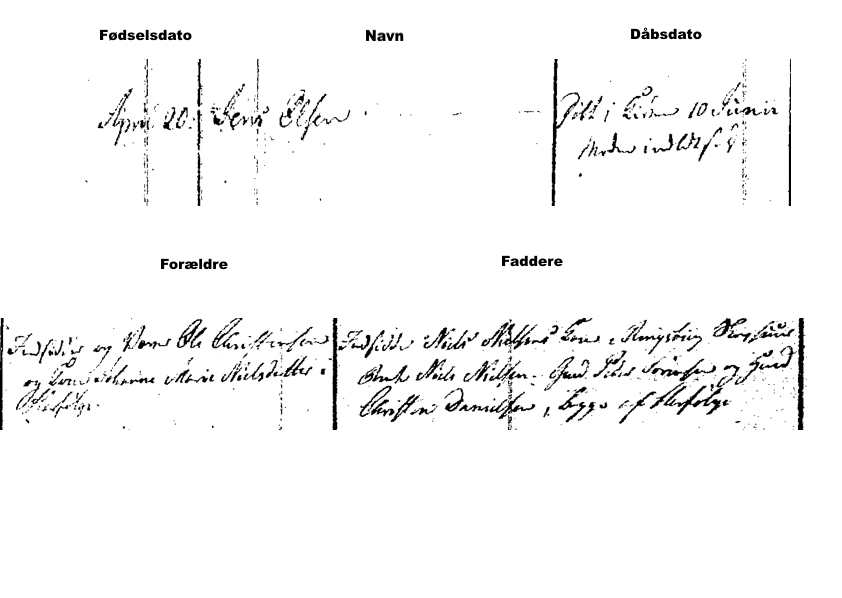 Fødselsdato
Navn
Dåbsdato
April 20. Jens Olsen
Døbt i Kirken 10 Junii
Moder indledt s. D.
Forældre
Faddere
Indsidder og Væver Ole Christensen
og Kone Johanne Marie Nielsdatter i
Herfølge.
Indsidder Niels Nielsens Kone, Ringsbierg
Niels Nielsen. Gmd. Peder Sørensen og Gmd
Christen Danielsen, begge af Herfølge